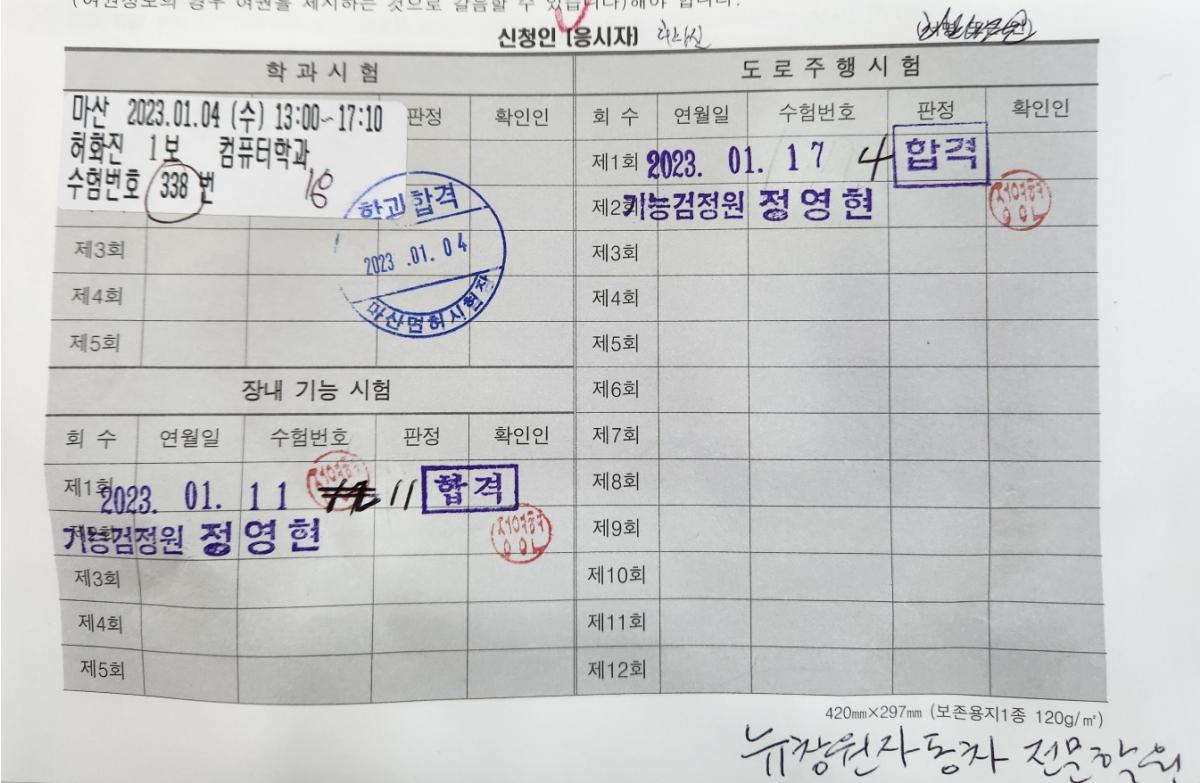 (여권정보의 경우 여권을 제시하는 것으로 갈음할 수 있습니다)해야 합니다.
신청인 (응시자)
학 과 시 험
마산 2023.01.04 (수) 13:00~17:10
허화진 1보 컴퓨터학과
수험번호 338 번
18
판정 확인인
제3회
제4회
제5회
학과 합격
2023 .01. 04
마산면허시험장
장내 기능 시험
회 수 연월일 수험번호 판정 확인인
제1회 2023. 01. 11 11 합격
기능검정원 정영현
제3회
제4회
제5회
도 로 주 행 시 험
회 수 연월일 수험번호 판정 확인인
제1회 2023. 01. 17 4 합격
제2회 기능검정원 정영현
제3회
제4회
제5회
제6회
제7회
제8회
제9회
제10회
제11회
제12회
420㎜×297㎜ (보존용지1종 120g/㎡)
뉴창원자동차 전문학원